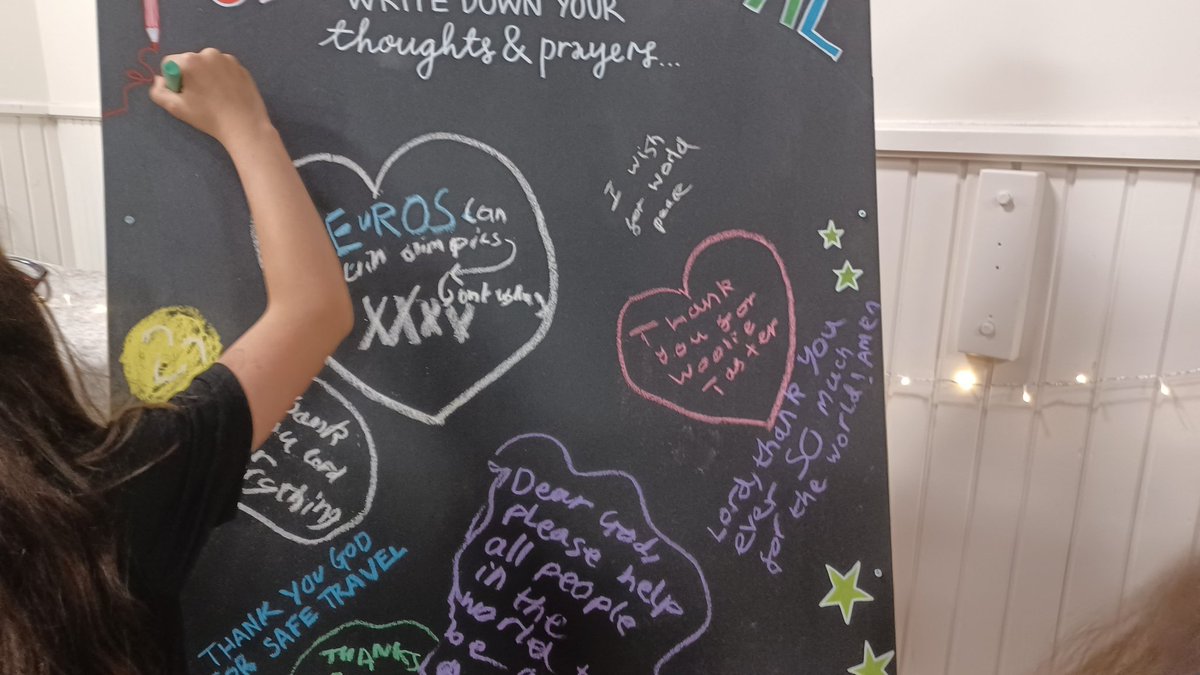 WRITE DOWN YOUR
thoughts & prayers...
I wish
for world
peace
EUROS Can
win olimpics
XXXV
Thank
you for
Woolie
Taster
Lordy, thank YOU
ever SO much
for the world! AMEN
Lord
THANK YOU GOD
FOR SAFE TRAVEL
THANKS
Dear God,
please help
all people
in the
world
be